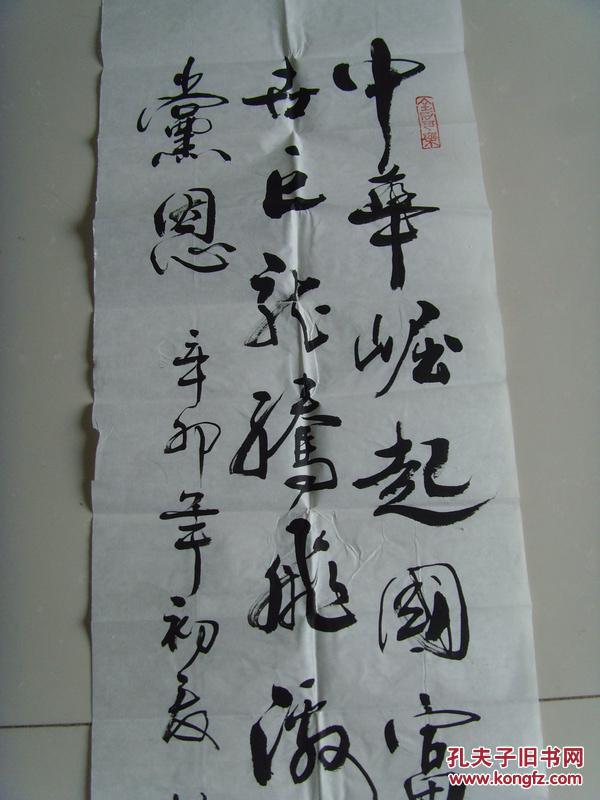 中華崛起國富
世巨龍騰飛激
黨恩 辛卯年初夏
孔夫子旧书网
www.kongfz.com